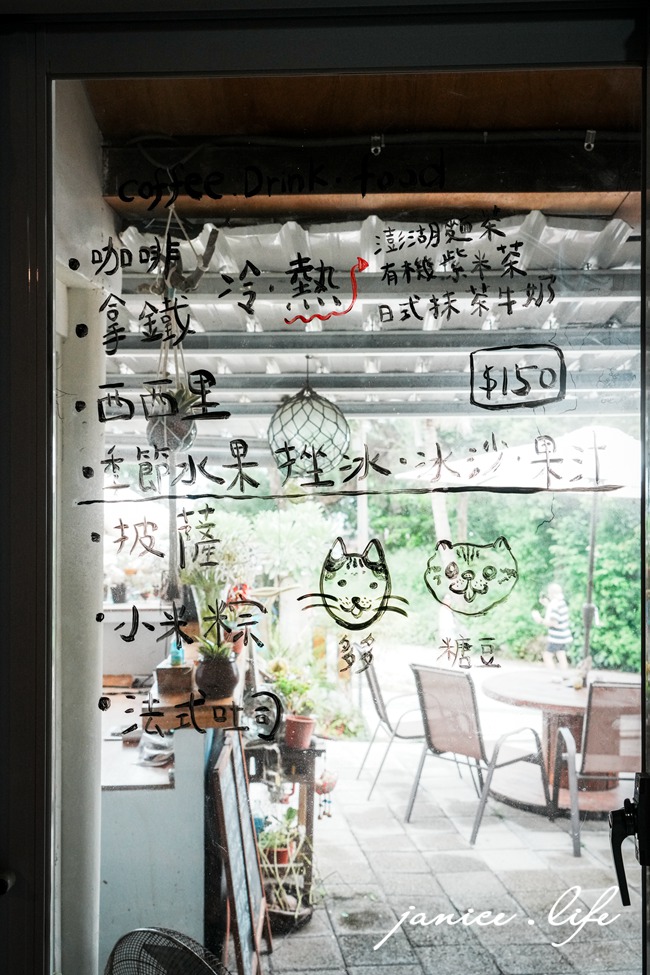 coffee.Drink.food
• 咖啡
冷.熱
澎湖麵茶
有機紫米茶
日式抹茶牛奶
• 拿鐵
• 西西里
$150
• 季節水果 挫冰.冰沙.果汁
• 披薩
• 小米粽
多多
糖豆
• 法式吐司
janice.life